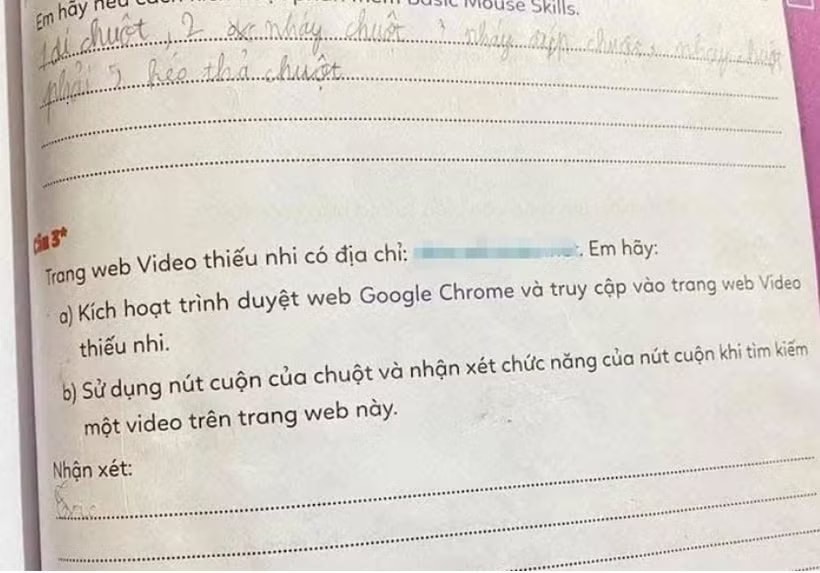 Em hãy nêu Basic Mouse Skills.
chuột, 2 nháy chuột, nháy chuột, nháy chuột
phải 5 kéo thả chuột
Câu 3*
Trang web Video thiếu nhi có địa chỉ: . Em hãy:
a) Kích hoạt trình duyệt web Google Chrome và truy cập vào trang web Video
thiếu nhi.
b) Sử dụng nút cuộn của chuột và nhận xét chức năng của nút cuộn khi tìm kiếm
một video trên trang web này.
Nhận xét: